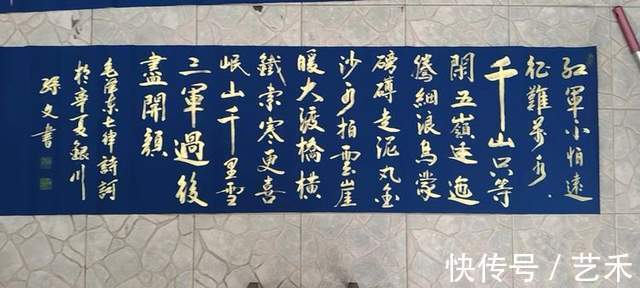 紅軍不怕遠
征難萬水
千山只等
閑五嶺逶迤
騰細浪烏蒙
磅礴走泥丸金
沙水拍雲崖
暖大渡橋橫
鐵索寒更喜
岷山千里雪
三軍過後
盡開顏
毛澤東七律詩詞
於辛夏銀川
文書
快传号 / 艺禾